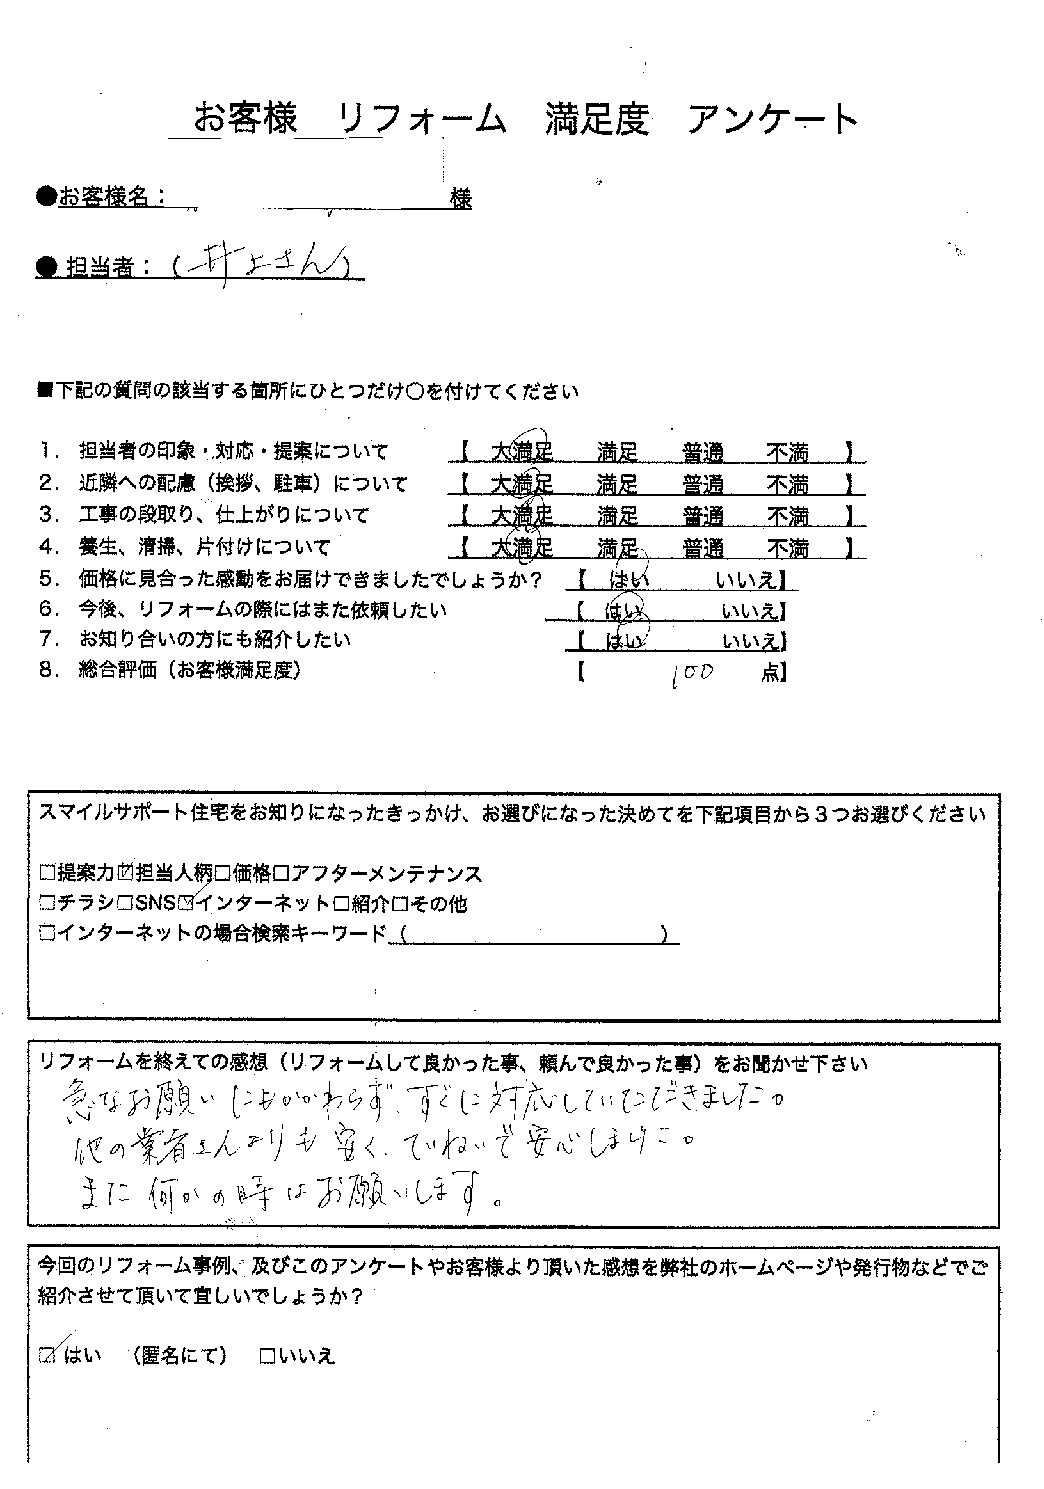 お客様　リフォーム　満足度　アンケート
●お客様名：　様
●担当者：（井上さん）
■下記の質問の該当する箇所にひとつだけ〇を付けてください
1．担当者の印象・対応・提案について　【　大満足　満足　普通　不満　】
2．近隣への配慮（挨拶、駐車）について　【　大満足　満足　普通　不満　】
3．工事の段取り、仕上がりについて　【　大満足　満足　普通　不満　】
4．養生、清掃、片付けについて　【　大満足　満足　普通　不満　】
5．価格に見合った感動をお届けできましたでしょうか？　【　はい　いいえ】
6．今後、リフォームの際にはまた依頼したい　【　はい　いいえ】
7．お知り合いの方にも紹介したい　【　はい　いいえ】
8．総合評価（お客様満足度）　【　100　点】
スマイルサポート住宅をお知りになったきっかけ、お選びになった決めてを下記項目から３つお選びください
□提案力☑担当人柄□価格□アフターメンテナンス
□チラシ□SNS☑インターネット□紹介□その他
□インターネットの場合検索キーワード（　）
リフォームを終えての感想（リフォームして良かった事、頼んで良かった事）をお聞かせ下さい
急なお願いにもかかわらず、すぐに対応していただきました。
他の業者さんよりも安く、ていねいで安心しました。
また何かの時はお願いします。
今回のリフォーム事例、及びこのアンケートやお客様より頂いた感想を弊社のホームページや発行物などでご
紹介させて頂いて宜しいでしょうか？
☑はい　（匿名にて）　□いいえ